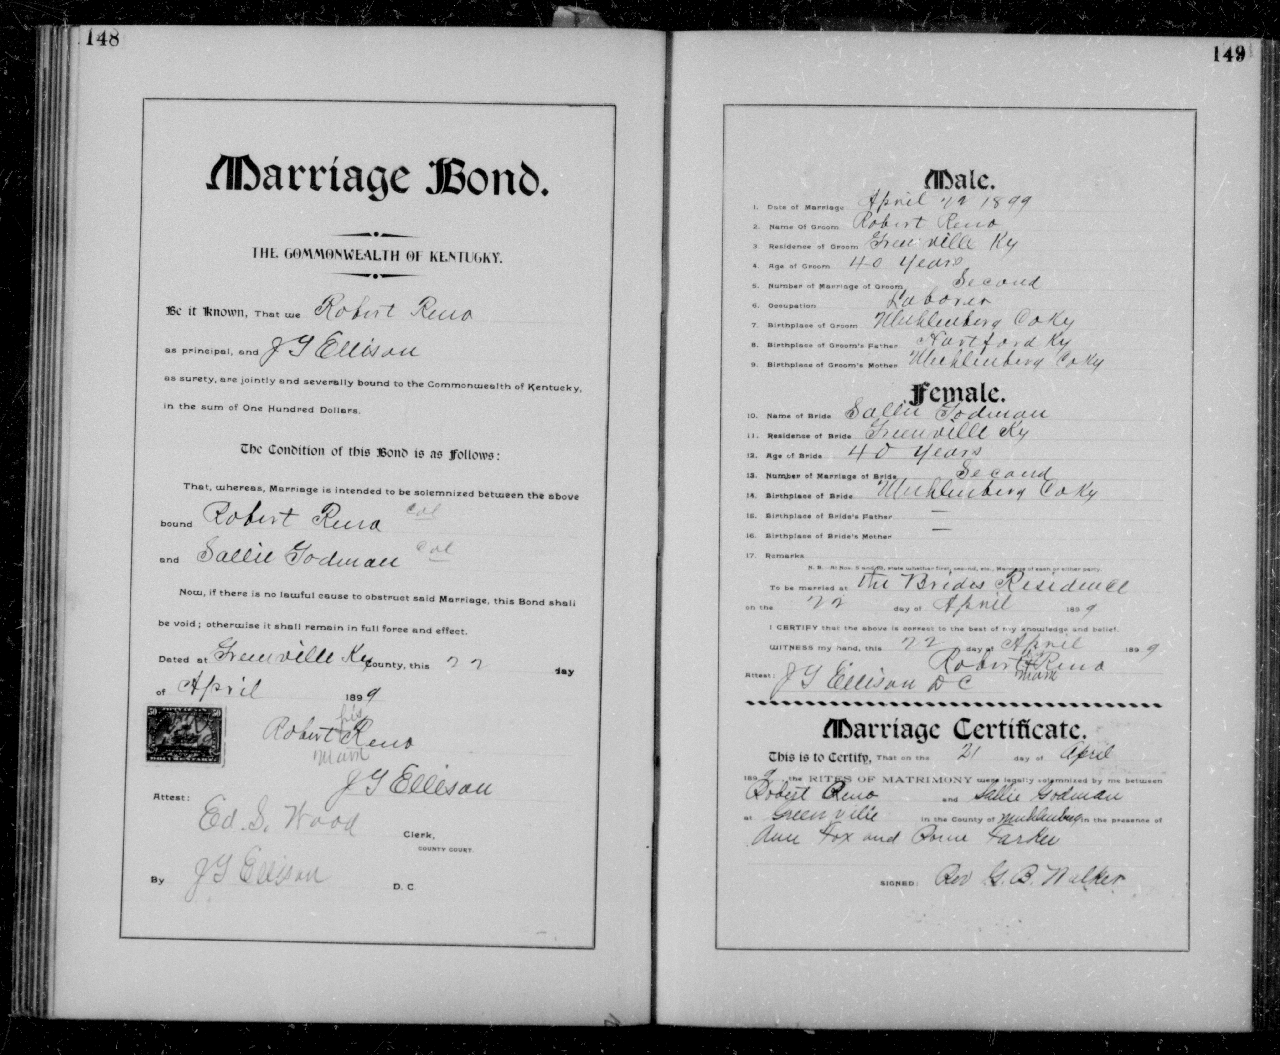 148
Marriage Bond.
THE COMMONWEALTH OF KENTUCKY.
Be it Known, That we Robert Reno
as principal, and J G Ellison
as surety, are jointly and severally bound to the Commonwealth of Kentucky,
in the sum of One Hundred Dollars.
The Condition of this Bond is as Follows:
That, whereas, Marriage is intended to be solemnized between the above
bound Robert Reno Col
and Sallie Godman Col
Now, if there is no lawful cause to obstruct said Marriage, this Bond shall
be void; otherwise it shall remain in full force and effect.
Dated at Greenville Ky County, this 22 day
of April 1899
his
Robert Reno
mark
J G Ellison
50 50
DOCUMENTARY
Attest:
Ed. S. Wood
Clerk,
COUNTY COURT.
By J G Ellison D. C.
149
Male.
1. Date of Marriage April 22 1899
2. Name Of Groom Robert Reno
3. Residence of Groom Greenville Ky
4. Age of Groom 40 years
5. Number of Marriage of Groom Second
6. Occupation Laborer
7. Birthplace of Groom Muhlenberg Co Ky
8. Birthplace of Groom's Father Hartford Ky
9. Birthplace of Groom's Mother Muhlenberg Co Ky
Female.
10. Name of Bride Sallie Godman
11. Residence of Bride Greenville Ky
12. Age of Bride 40 years
13. Number of Marriage of Bride Second
14. Birthplace of Bride Muhlenberg Co Ky
15. Birthplace of Bride's Father —
16. Birthplace of Bride's Mother —
17. Remarks
N. B.—At Nos. 5 and 13, state whether first, second, etc., Marriage of each or either party.
To be married at the Brides Residence
on the 22 day of April 1899
I CERTIFY that the above is correct to the best of my knowledge and belief.
WITNESS my hand, this 22 day of April 1899
his
Robert X Reno
mark
Attest: J G Ellison D C
Marriage Certificate.
This is to Certify, That on the 21 day of April
1899 the RITES OF MATRIMONY were legally solemnized by me between
Robert Reno and Sallie Godman
at Greenville in the County of Muhlenberg in the presence of
Ann Fox and
SIGNED: Rev G. B. Walker